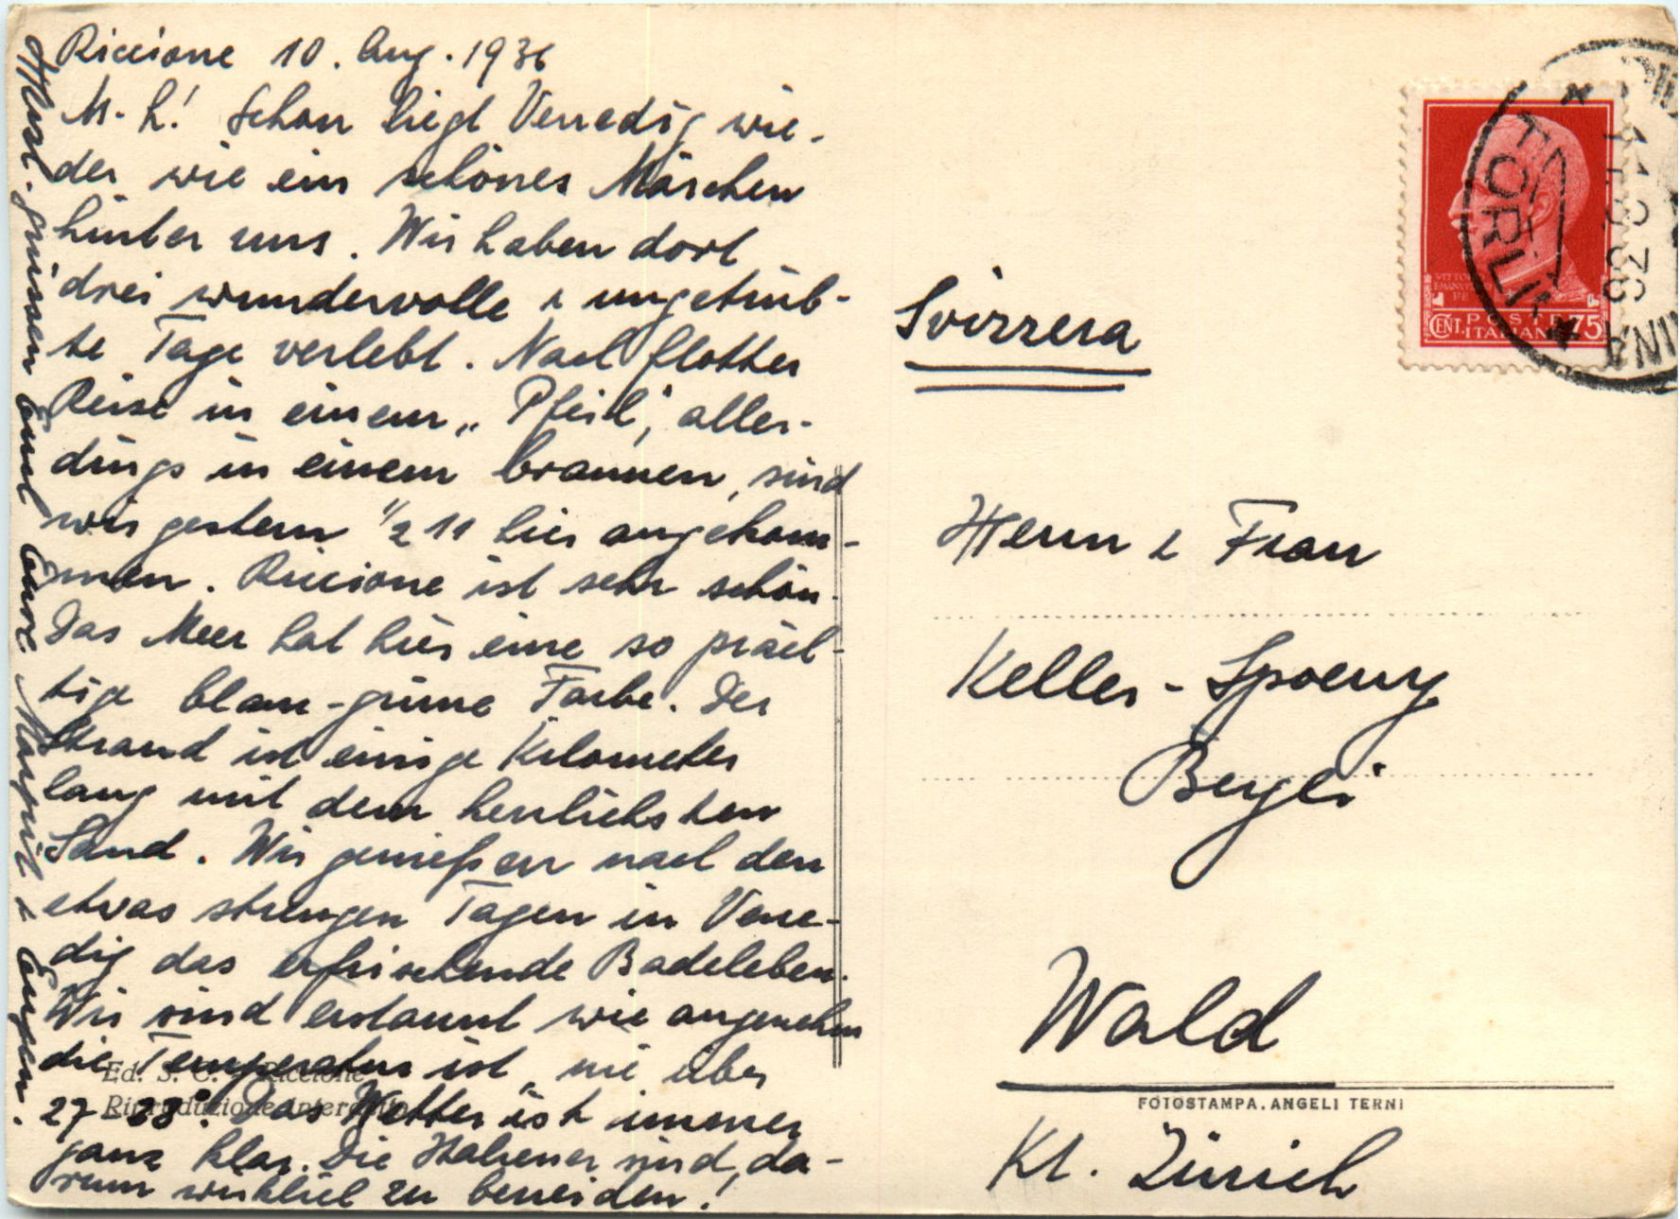 Riccione 10. Aug. 1936
M. L.! Schon liegt Venedig wie-
der wie ein schönes Märchen
hinter uns. Wir haben dort
drei wundervolle & ungetrüb-
te Tage verlebt. Nach flotter
Reise in einem „Pfeil", aller-
dings in einem braunen, sind
wir gestern ½ 11 hier angekom-
men. Riccione ist sehr schön.
Das Meer hat hier eine so präch-
tige blau-grüne Farbe. Der
Strand ist einige Kilometer
lang mit dem herrlichsten
Sand. Wir genießen nach den
etwas strengen Tagen in Vene-
dig das erfrischende Badeleben.
Wir sind erstaunt wie angenehm
die Temperatur ist, nie über
27-28°. Das Wetter ist immer
ganz klar. Die Italiener sind da-
rum wirklich zu beneiden!
Herzl. grüssen Euch Eure & Eugen.
Ed. S. C. Riccione
Riproduzione interdetta
Svizzera
Herrn & Frau
Keller-Spoerry
Bergli
Wald
Kt. Zürich
FOTOSTAMPA. ANGELI TERNI
POSTE
ITALIANE
CENT. 75
FORLI
11.8.36